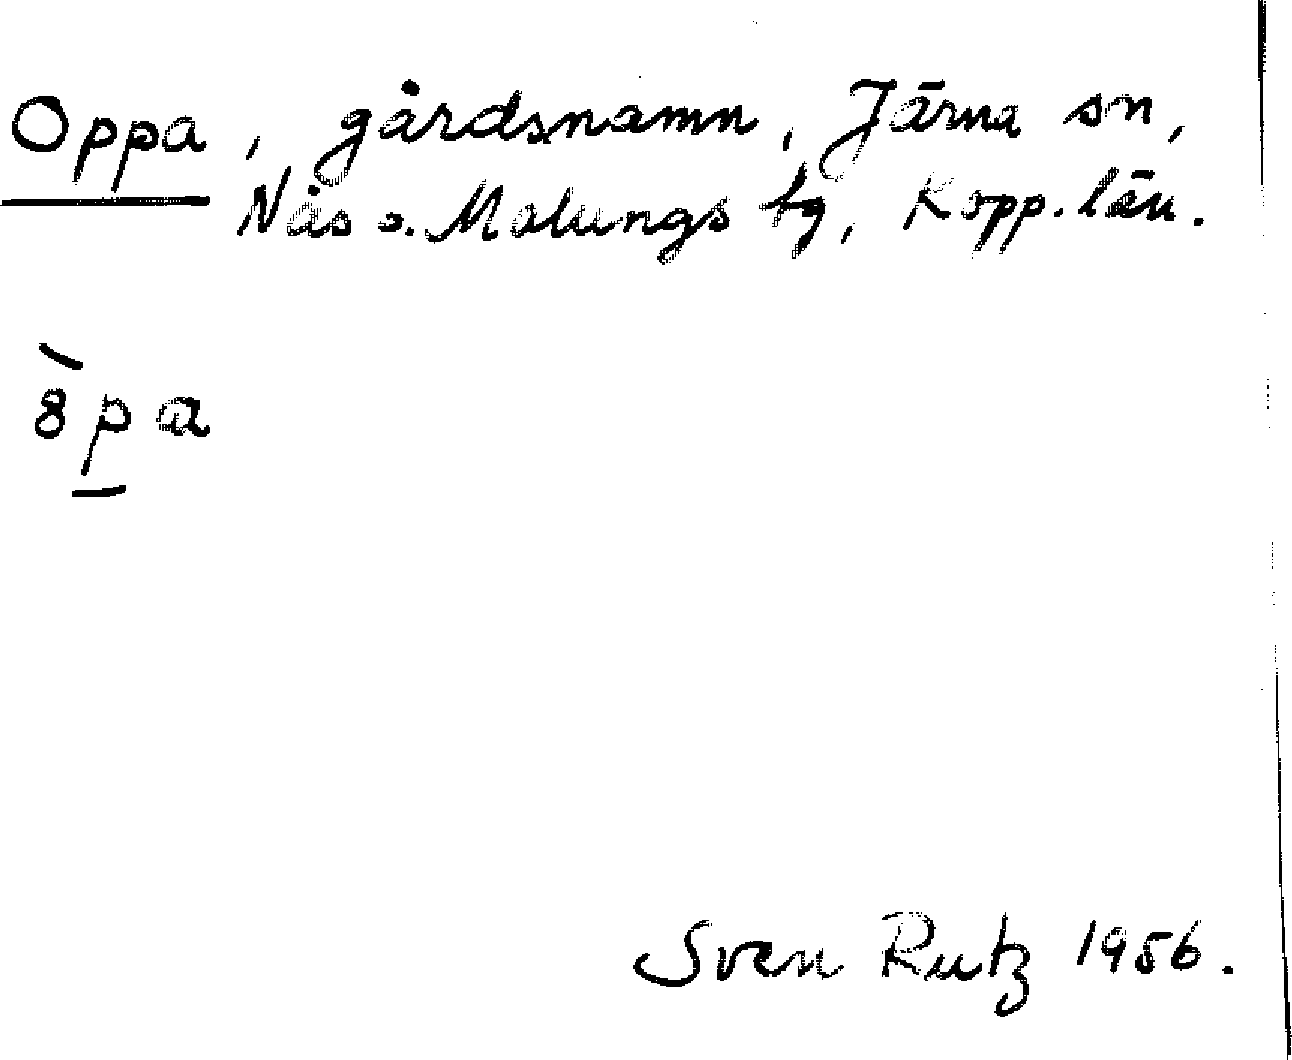 Oppa, gårdsnamn, Järna sn,
Näs o. Malungs tg, Kopp. län.
8̀p̲a
Sven Rutz 1956.